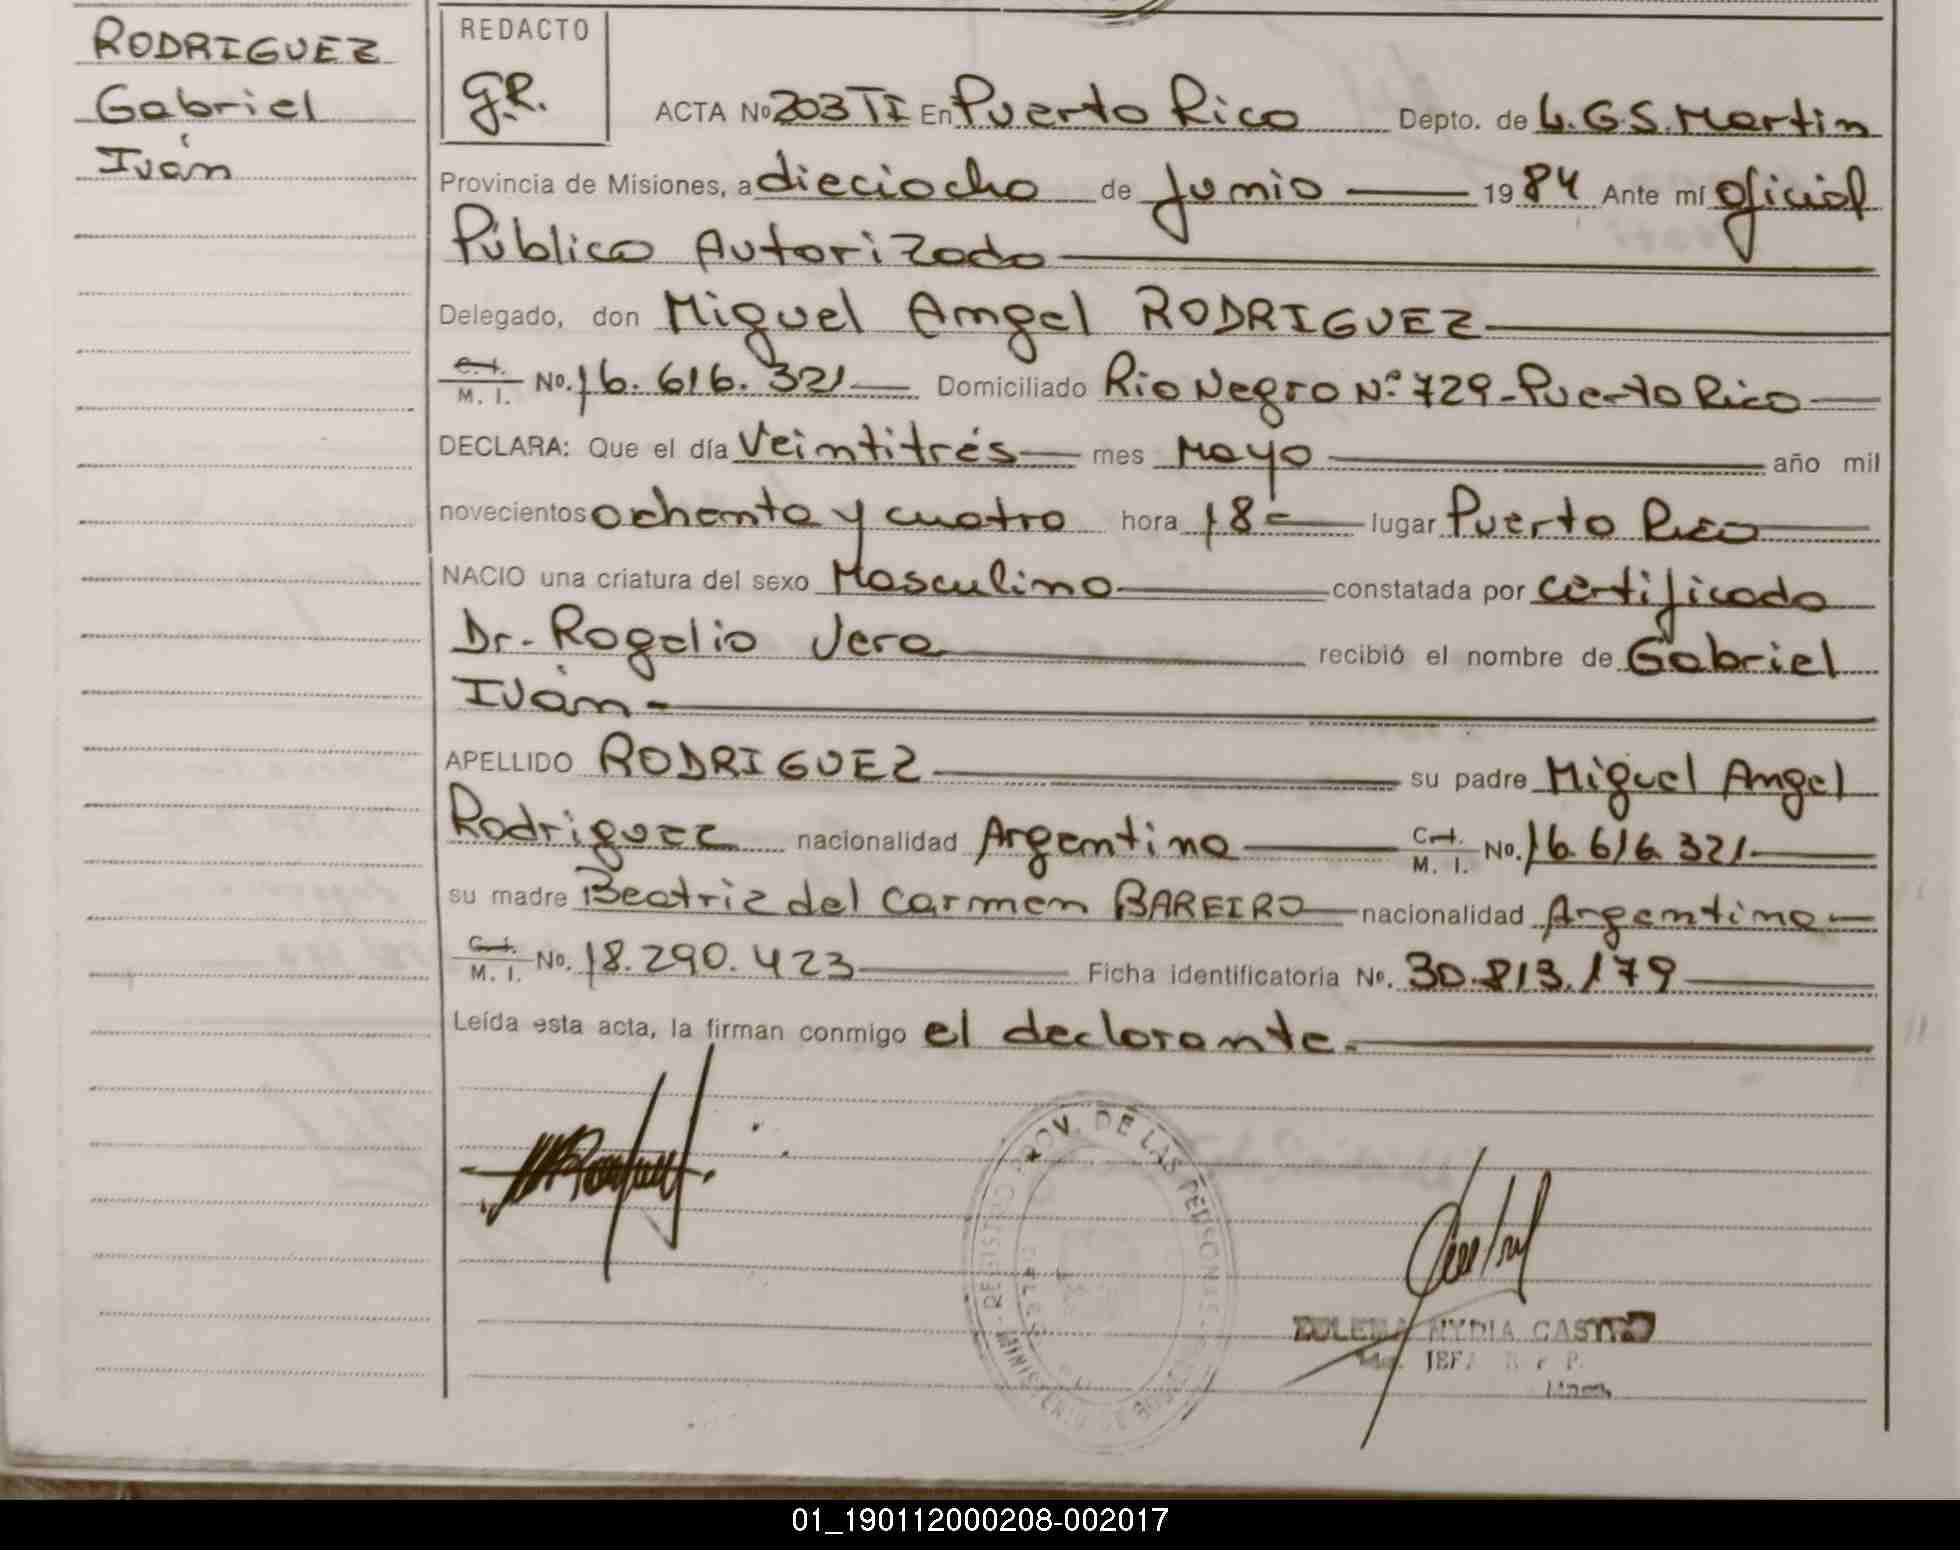 RODRIGUEZ
Gabriel
Iván
REDACTO
G.R.
ACTA No 203 TI En Puerto Rico Depto. de L.G.S. Martin
Provincia de Misiones, a dieciocho de Junio 1984 Ante mí oficial
Público Autorizado
Delegado, don Miguel Angel RODRIGUEZ
C.I. M. I. No. 16.616.321 Domiciliado Rio Negro Nº 729-Puerto Rico
DECLARA: Que el día Veintitrés mes Mayo año mil
novecientos ochenta y cuatro hora 18- lugar Puerto Rico
NACIO una criatura del sexo Masculino constatada por certificado
Dr. Rogelio Vera recibió el nombre de Gabriel
Iván
APELLIDO RODRIGUEZ su padre Miguel Angel
Rodriguez nacionalidad Argentina C.I. M. I. No. 16.616.321
su madre Beatriz del Carmen BAREIRO nacionalidad Argentina
C.I. M. I. No. 18.290.423 Ficha identificatoria No. 30.813.179
Leída esta acta, la firman conmigo el declarante.
REGISTRO PROV. DE LAS PERSONAS
MINISTERIO DE
ZULEMA NYDIA CASTRO
JEFA
01_190112000208-002017